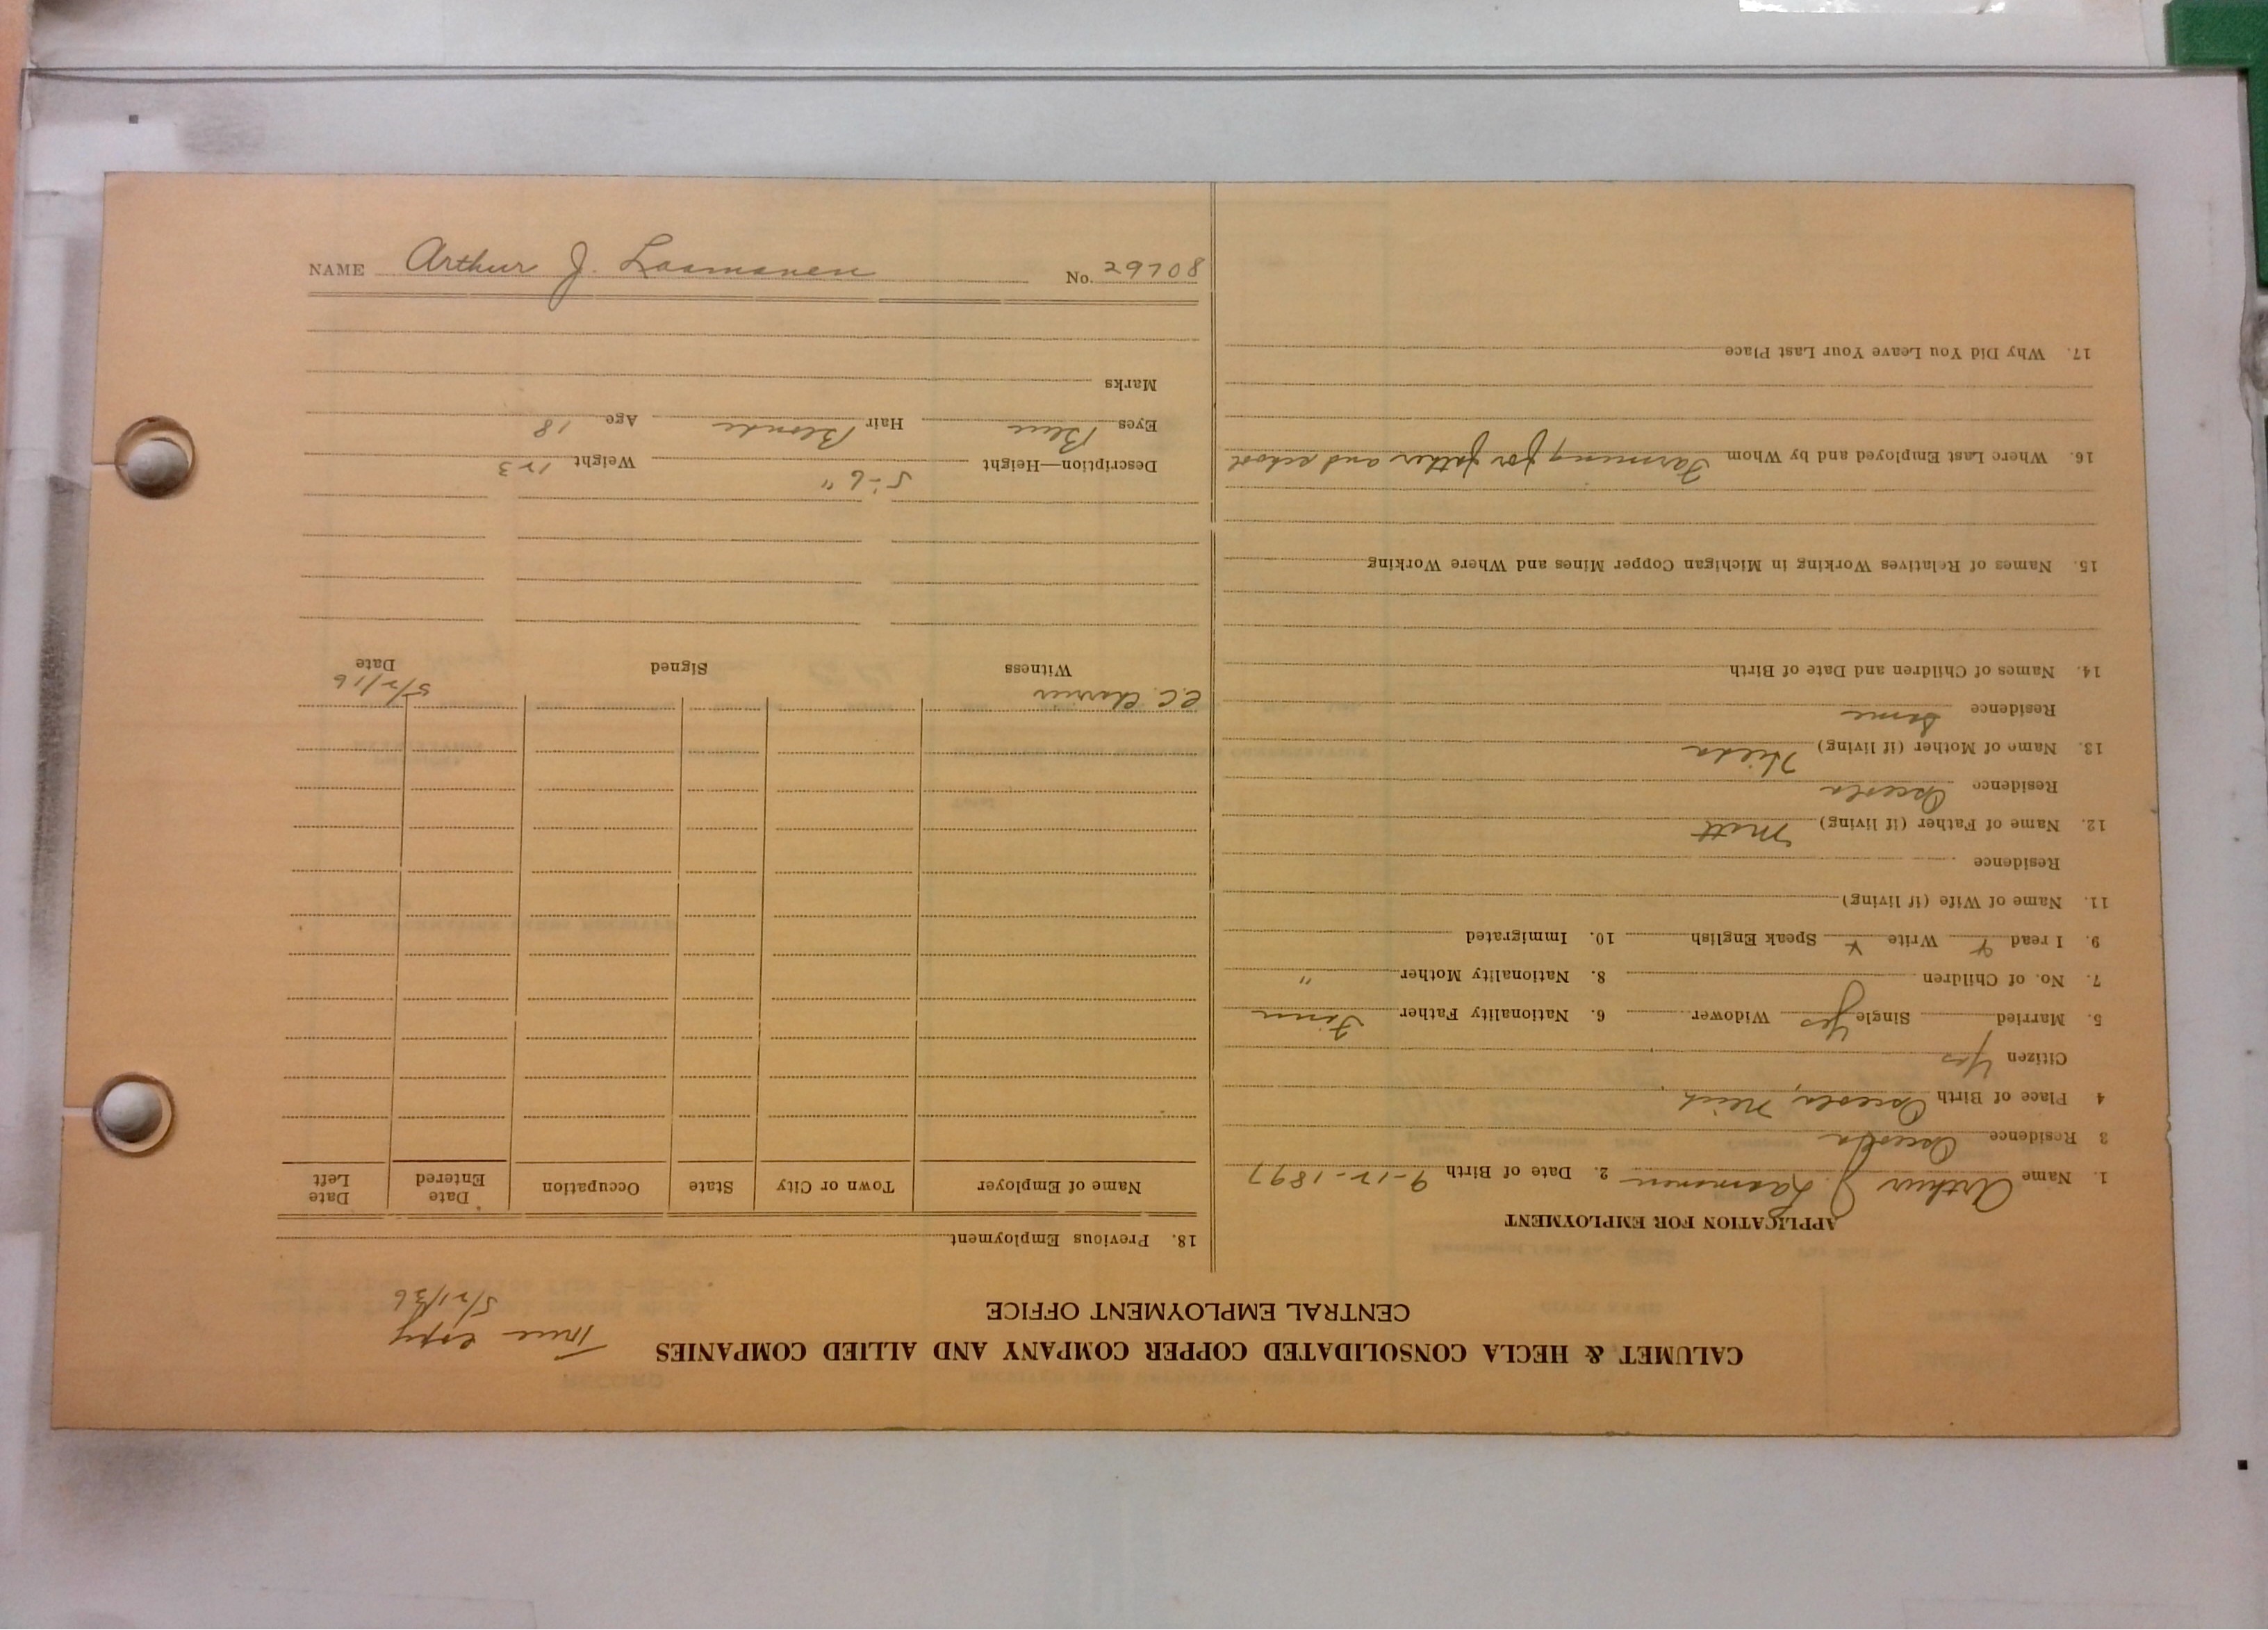 CALUMET & HECLA CONSOLIDATED COPPER COMPANY AND ALLIED COMPANIES
CENTRAL EMPLOYMENT OFFICE
True copy
5/21/36
APPLICATION FOR EMPLOYMENT
1. Name Arthur J. Laamanen 2. Date of Birth 9-12-1897
3 Residence Osceola
4 Place of Birth Osceola, Mich
Citizen Yes
5. Married Single Yes Widower 6. Nationality Father Finn
7. No. of Children 8. Nationality Mother "
9. I read Y Write Y Speak English 10. Immigrated
11. Name of Wife (if living)
Residence
12. Name of Father (if living) Matt
Residence Osceola
13. Name of Mother (if living) Hilda
Residence Same
14. Names of Children and Date of Birth
15. Names of Relatives Working in Michigan Copper Mines and Where Working
16. Where Last Employed and by Whom Farming for father and school
17. Why Did You Leave Your Last Place
18. Previous Employment
Name of Employer Town or City State Occupation Date Entered Date Left
C.C. 5/2/16
Witness Signed Date
Description—Height 5-6" Weight 123
Eyes Blue Hair Blonde Age 18
Marks
NAME Arthur J. Laamanen No. 29708